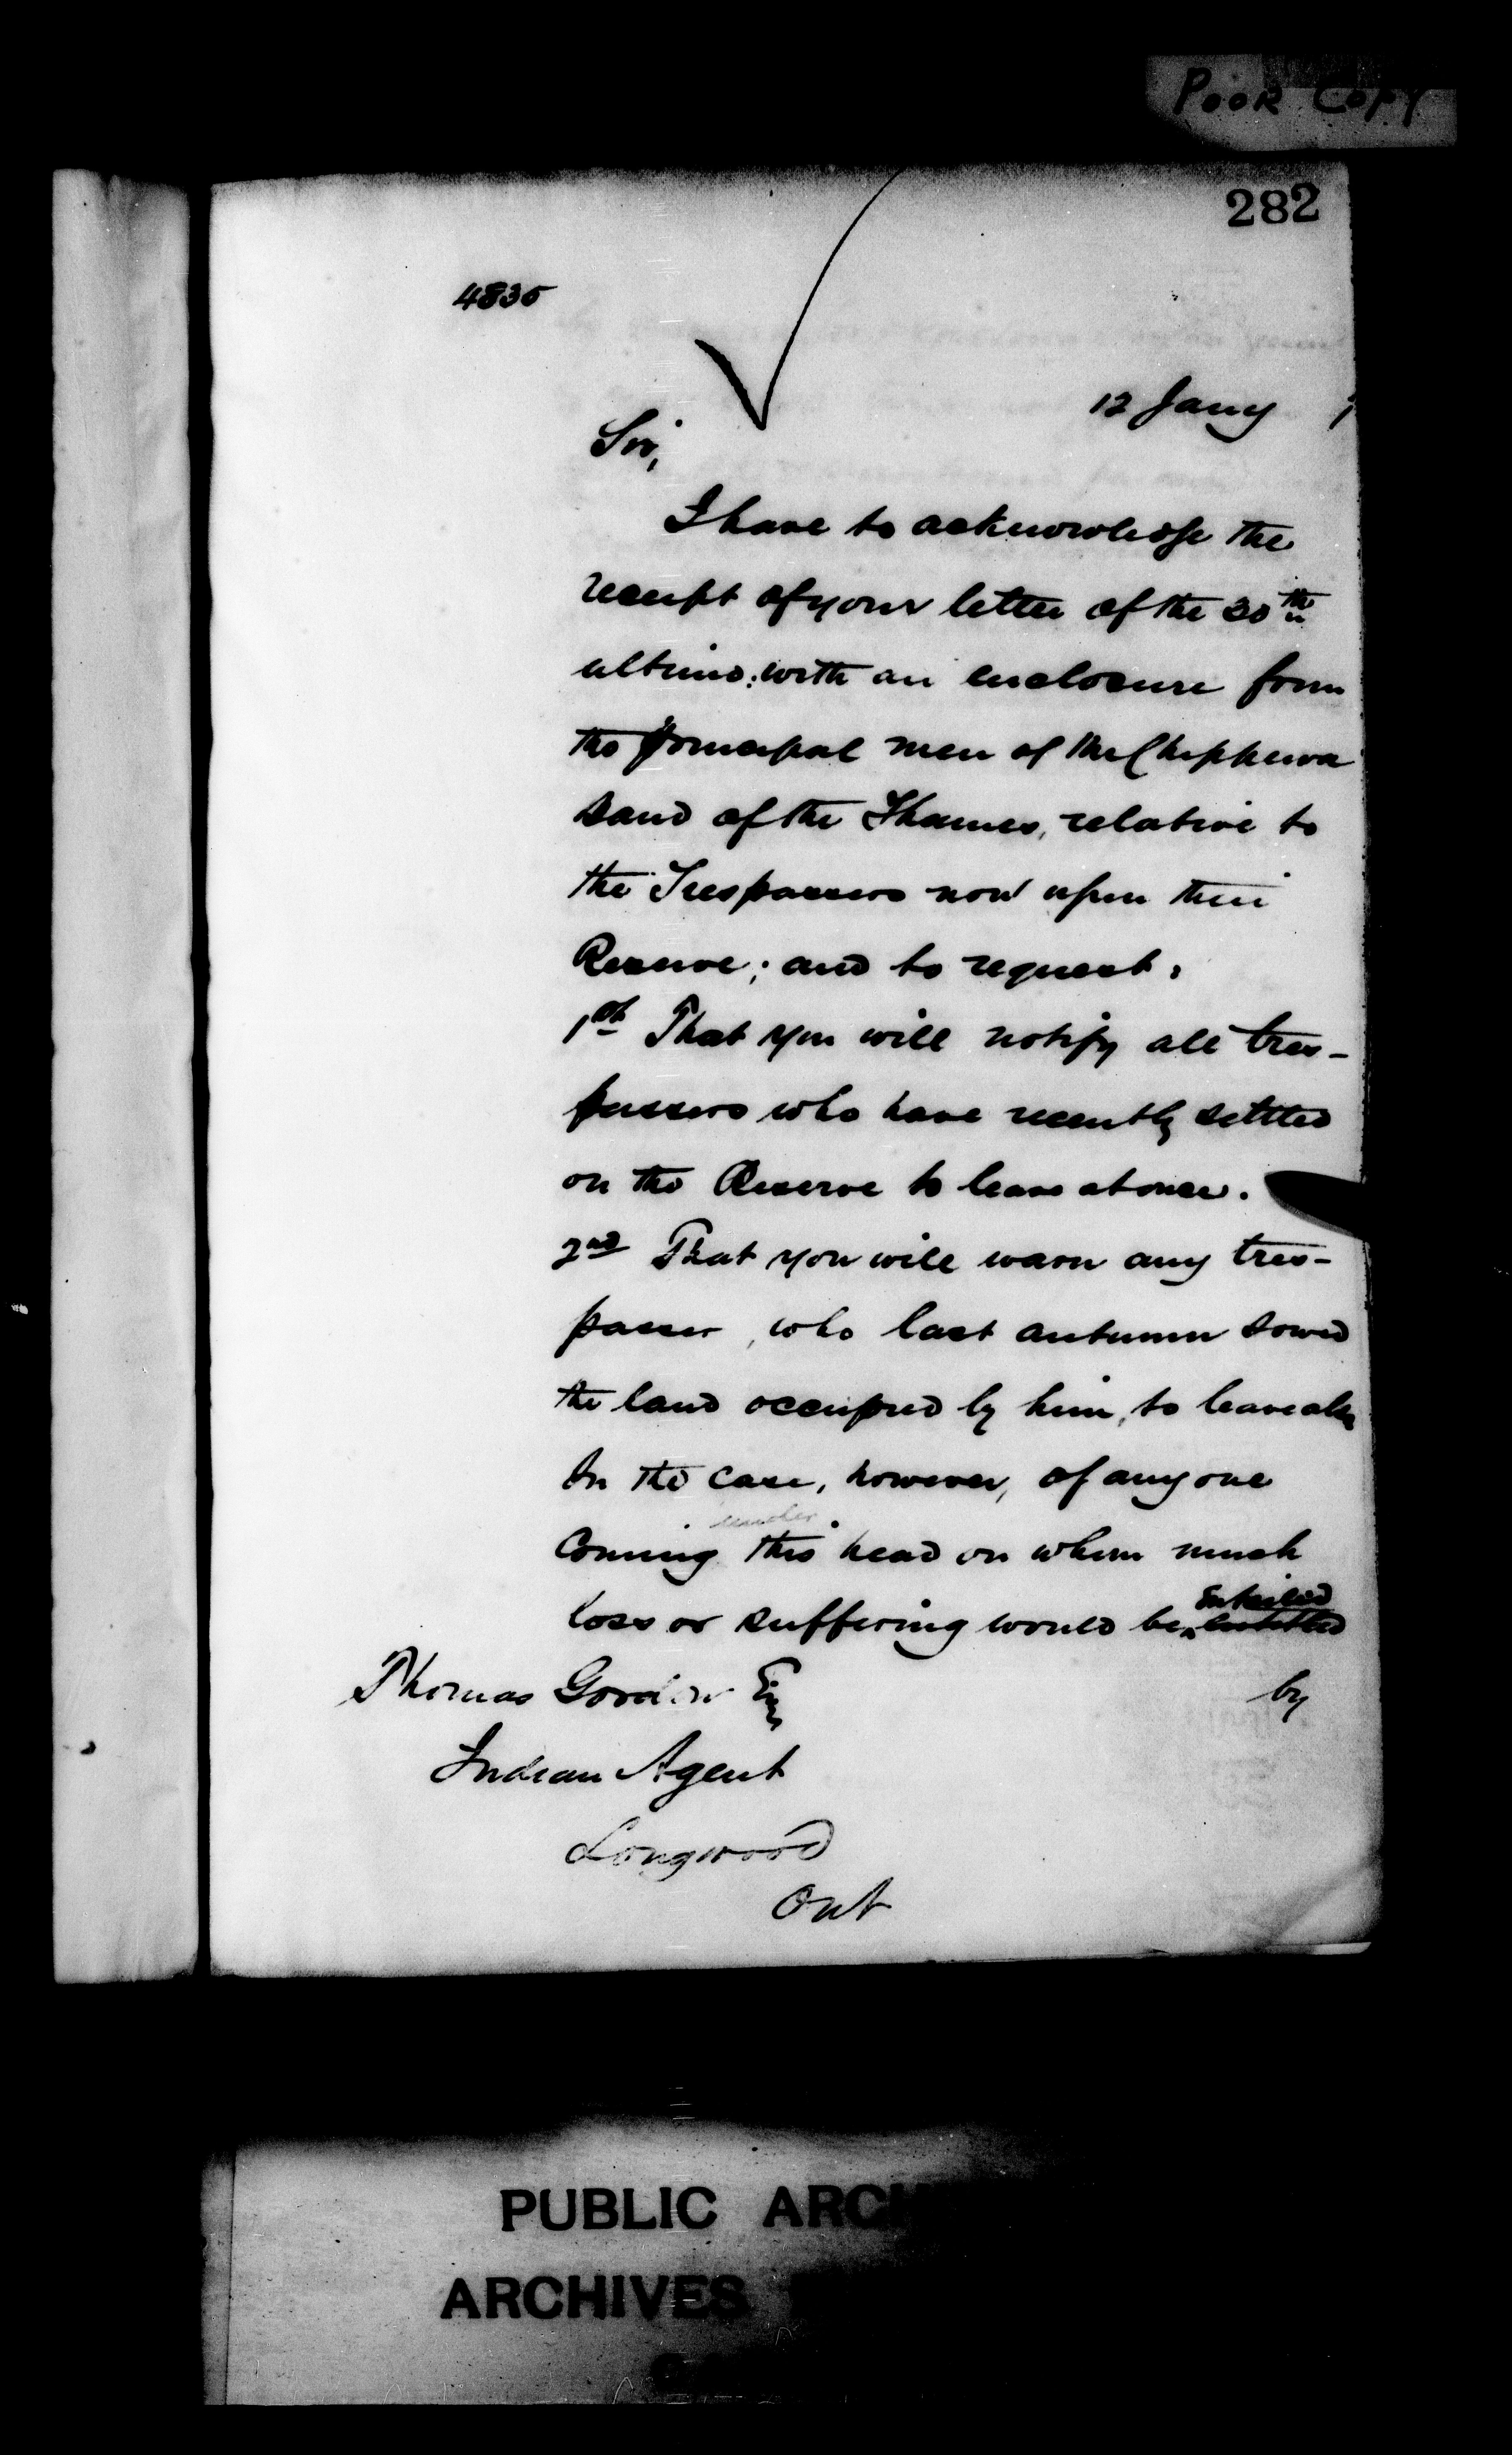 POOR COPY
282
4835
12 Jany
Sir,
I have to acknowledge the
receipt of your letter of the 30th
ultimo: with an enclosure from
the principal men of the Chippewa
Band of the Thames, relative to
the Trespassers now upon their
Reserve; and to request:
1st That you will notify all tres-
passers who have recently settled
on the Reserve to leave at once.
2nd That you will warn any tres-
passer, who last autumn sowed
the land occupied by him, to leave also
In the case, however, of any one
under
Coming this head on whom much
Entailed
loss or suffering would be
Thomas Gordon Esq
by
Indian Agent
Longwood
Ont
PUBLIC ARCH
ARCHIVES